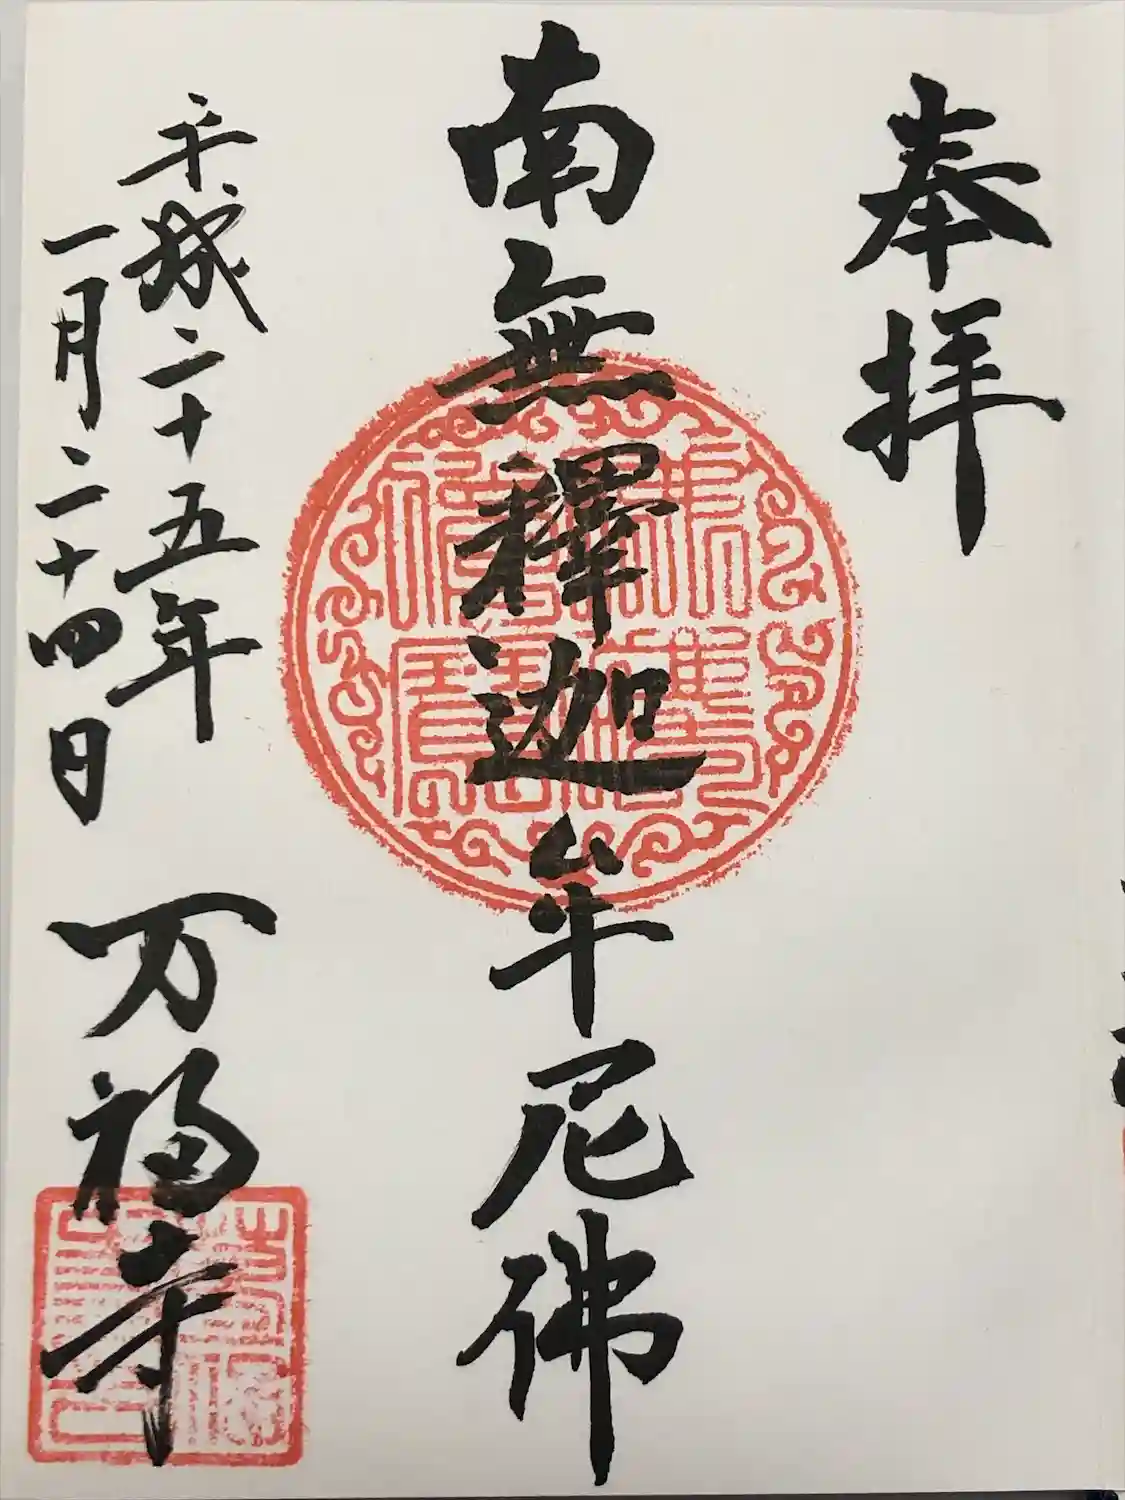 奉拝
南無釋迦牟尼佛
平成二十五年
一月二十四日
万福寺